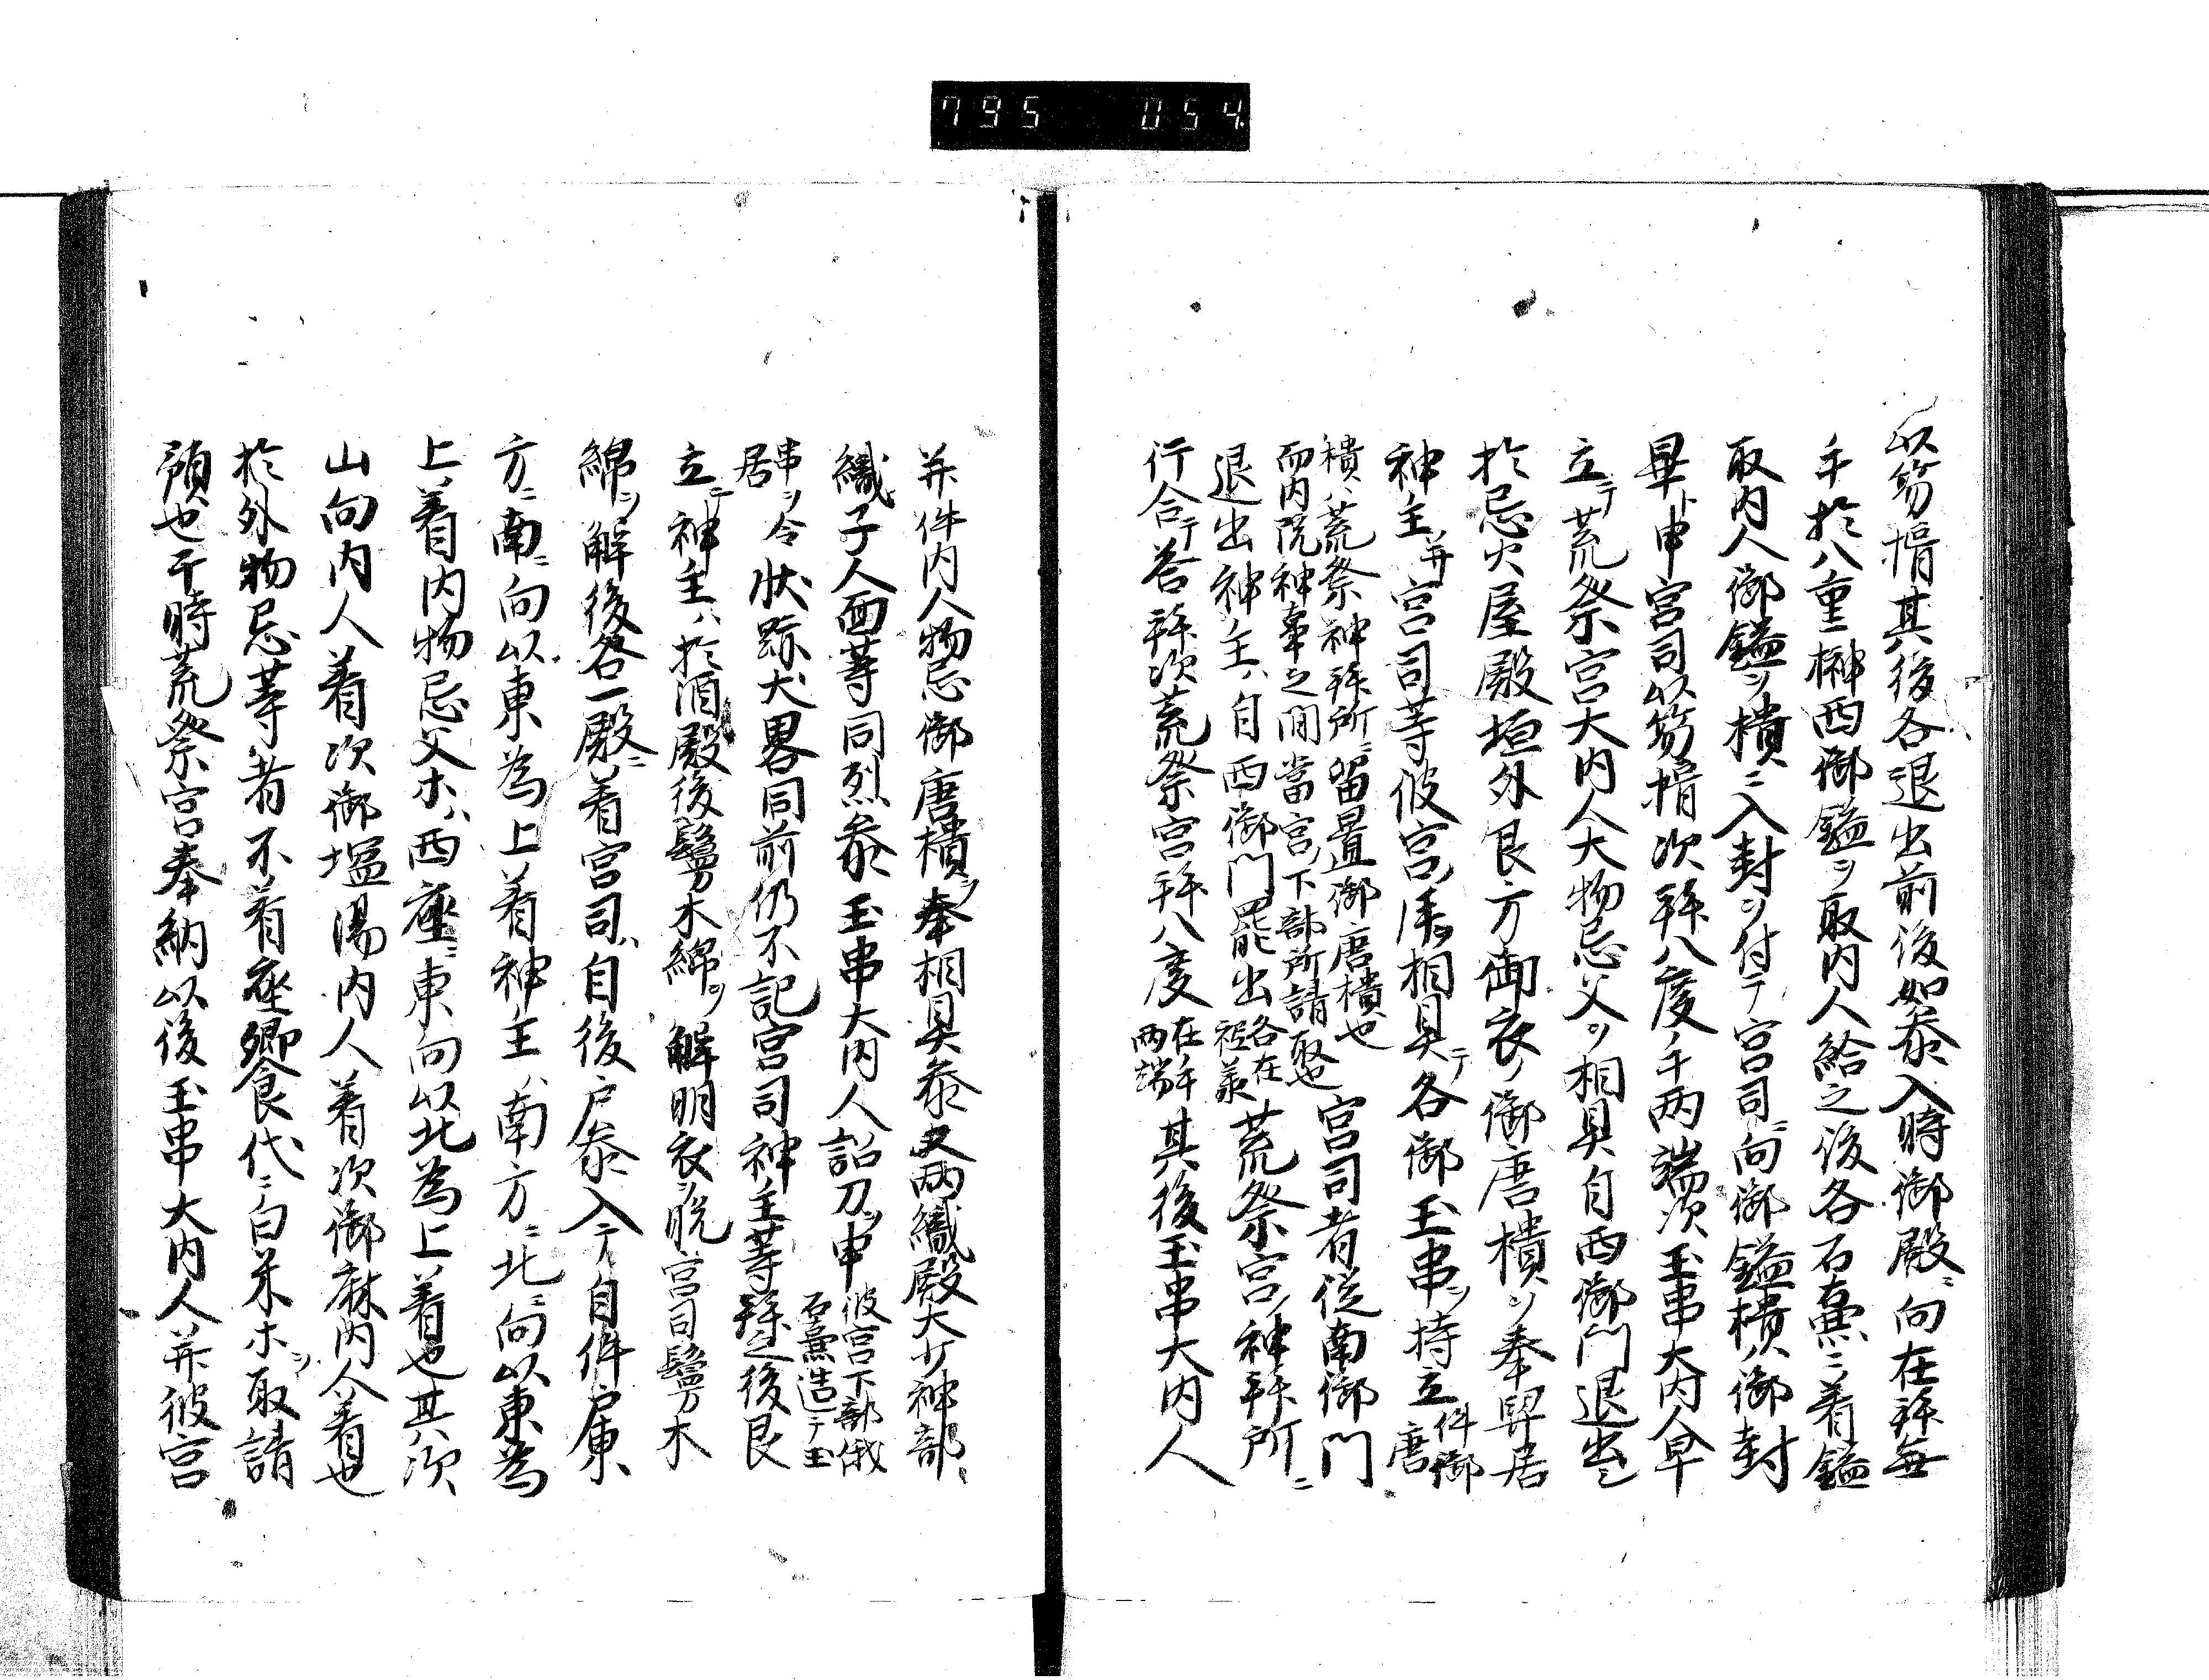 795 054
以笏揖其後各退出前後如参入時御殿ニ向在拝無
手於八重榊西御鎰ヲ取内人給之後各石壷ニ着鎰
取内人御鎰ヲ櫃ニ入封ヲ付テ宮司ニ向御鎰櫃ノ御封
畢ト申宮司以笏揖次拝八度手両端次玉串大内人早
立テ荒祭宮大内人大物忌父ヲ相具自西御門退出シ
於忌火屋殿垣外艮方御衣ノ御唐櫃ヲ奉舁居
神主并宮司等彼宮ノ相具テ各御玉串ヲ持立件御唐
櫃ハ荒祭神拝所ニ留置御唐櫃也
而内院神事之間當宮ノ下部所請取也宮司者従南御門
退出神主ハ自西御門罷出各在荒祭宮ノ神拝所ニ
行合テ答拝次荒祭宮拝八度在手両端其後玉串大内人
并件内人物忌御唐櫃ヲ奉相具参又両織殿大少神部ハ
織子人面等同烈参玉串大内人詔刀ヲ申彼宮下部俄石壷造テ玉
串ヲ令居状跡大畧同前仍不記宮司神主等拝之後艮
立テ神主ハ於酒殿後鬘木綿ヲ解明衣ヲ脱宮司鬘木
綿ヲ解後各一殿ニ着宮司ハ自後戸参入テ自件戸東
方ニ南ニ向以東為上着神主ハ南方ニ北ニ向以東為
上着内物忌父ホハ西座ニ東向以北為上着也其次
山向内人着次御塩湯内人着次御麻内人着也
於外物忌等者不着座饗食代ニ白米ホヲ取請
預也于時荒祭宮奉納以後玉串大内人并彼宮